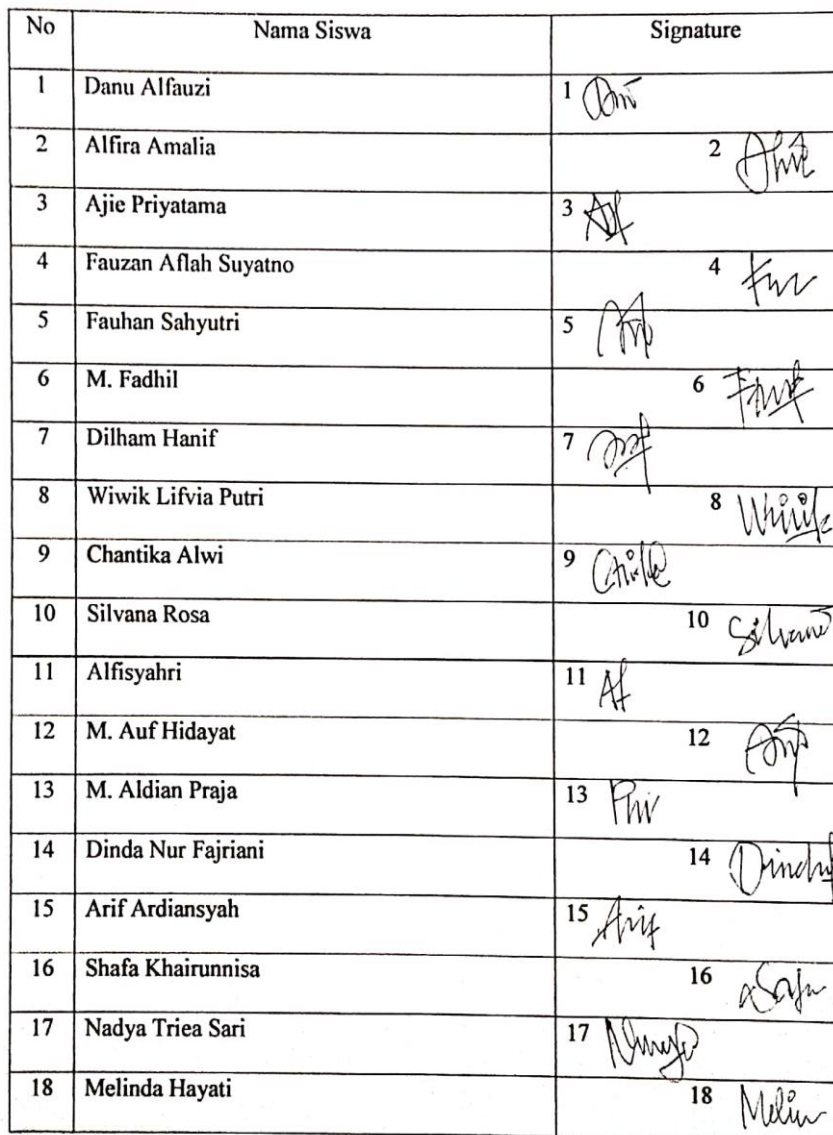 No Nama Siswa Signature
1 Danu Alfauzi 1
2 Alfira Amalia 2
3 Ajie Priyatama 3
4 Fauzan Aflah Suyatno 4
5 Fauhan Sahyutri 5
6 M. Fadhil 6
7 Dilham Hanif 7
8 Wiwik Lifvia Putri 8
9 Chantika Alwi 9
10 Silvana Rosa 10
11 Alfisyahri 11
12 M. Auf Hidayat 12
13 M. Aldian Praja 13
14 Dinda Nur Fajriani 14
15 Arif Ardiansyah 15
16 Shafa Khairunnisa 16
17 Nadya Triea Sari 17
18 Melinda Hayati 18